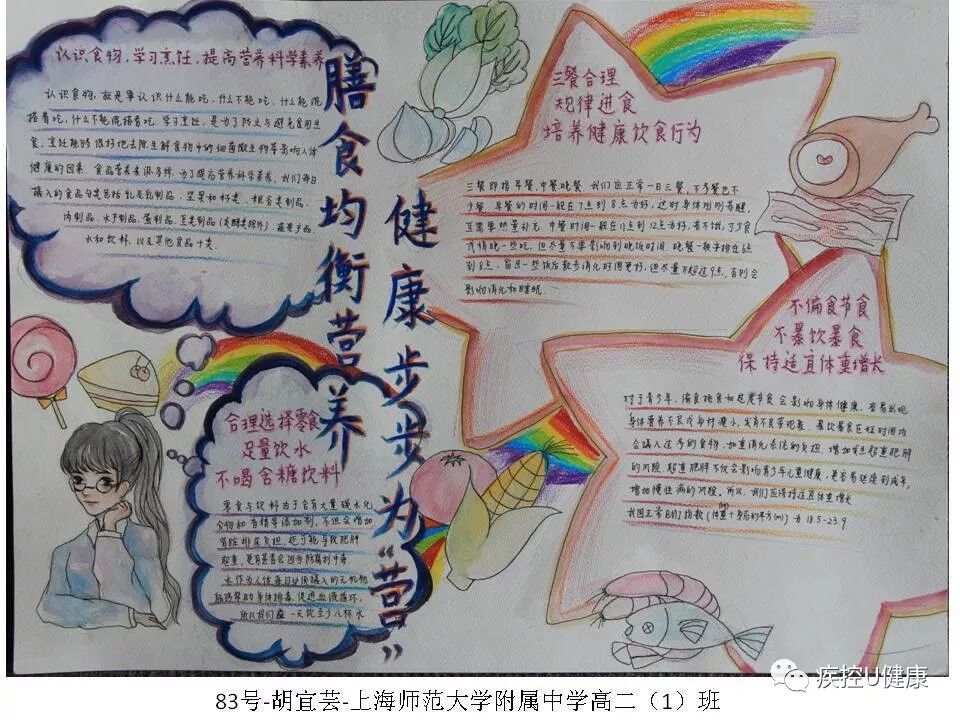 认识食物,学习烹饪,提高营养科学素养
认识食物,就是要认识什么能吃,什么不能吃,什么能混
搭着吃,什么不能混搭着吃,学习烹饪,是为了防止与避免食用生
食,烹饪能够很好地去除生鲜食物中的细菌微生物等影响人体
健康的因素。食品营养来源多样,为了提高营养科学素养,我们每日
摄入的食品分类包括乳及乳制品、坚果和籽类、粮谷类制品、
肉制品、水产制品、蛋制品、豆类制品(发酵类除外)、蔬果产品、
水和饮料,以及其他食品十类。
膳食均衡营养
健康步步为“营”
三餐合理
规律进食
培养健康饮食行为
三餐即指早餐,中餐晚餐,我们应正常一日三餐,不多餐也不
少餐,早餐的时间一般在7点到8点为好,这时身体刚刚苏醒,
正需要热量补充,中餐时间一般在11点到12点为好,若不饿,可少食
或稍晚一些吃,但尽量不要影响到晚饭时间,晚餐一般安排在6点
到8点,留出一些饭后散步消化时间更好,但尽量不超过9点,否则会
影响消化和睡眠.
不偏食节食
不暴饮暴食
保持适宜体重增长
对于青少年,偏食挑食和过度节食会影响身体健康,容易出现
身体营养不良或身材矮小,发育不良等现象
会摄入过多的食物,加重消化系统的负担,增加发生超重肥胖
的风险,超重肥胖不仅会影响青少年儿童健康,更容易延续到成年,
增加慢性病的风险。所以,我们应保持适宜体重增长
我国正常BMI指数(体重÷身高的平方(m))为18.5-23.9
合理选择零食
足量饮水
不喝含糖饮料
零食与饮料由于含有大量碳水化
合物和香精等添加剂,不但会增加
肾脏排尿负担,还可能导致肥胖
超重,更有甚者会因为防腐剂中毒
水作为人体每日必须摄入的无机物
能够帮助身体排毒,促进血液循环,
所以我们应一天饮至少八杯水
疾控U健康
83号-胡宜芸-上海师范大学附属中学高二（1）班